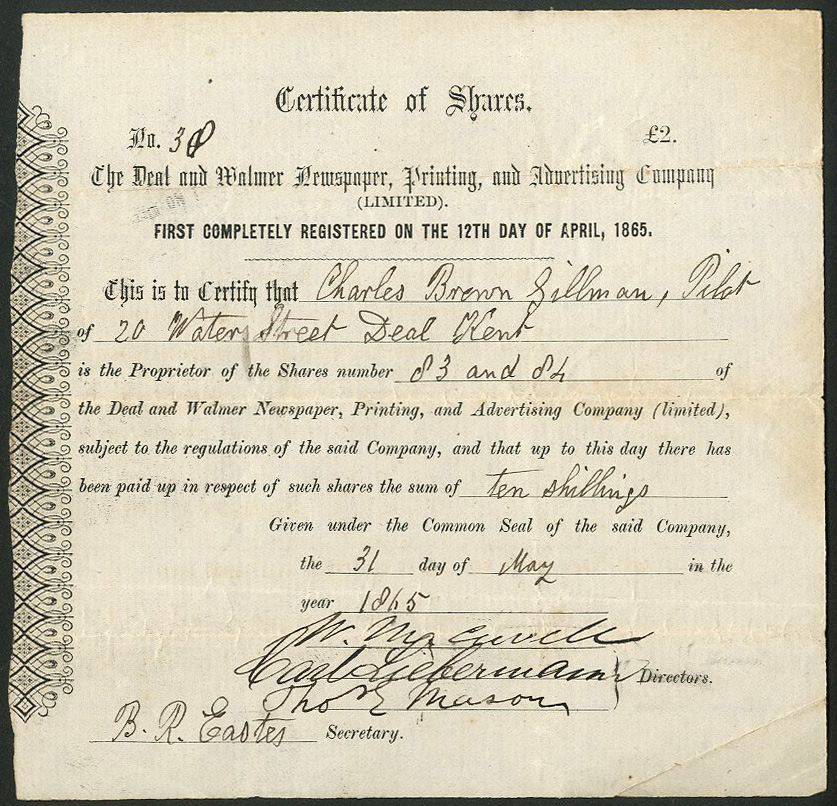 Certificate of Shares.
No. 38 £2.
The Deal and Walmer Newspaper, Printing, and Advertising Company
(LIMITED).
FIRST COMPLETELY REGISTERED ON THE 12TH DAY OF APRIL, 1865.
This is to Certify that Charles Brown Gillman, Pilot
of 20 Water Street Deal Kent
is the Proprietor of the Shares number 83 and 84 of
the Deal and Walmer Newspaper, Printing, and Advertising Company (limited),
subject to the regulations of the said Company, and that up to this day there has
been paid up in respect of such shares the sum of ten shillings
Given under the Common Seal of the said Company,
the 31 day of May in the
year 1865
W.
Carl Liebermann
Directors.
Tho E Mason
B. R. Eastes Secretary.